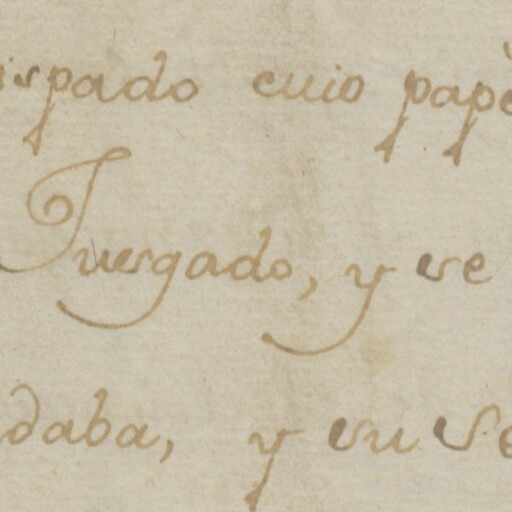 ispado cuio pape
Jusgado, y se
daba, y su Se